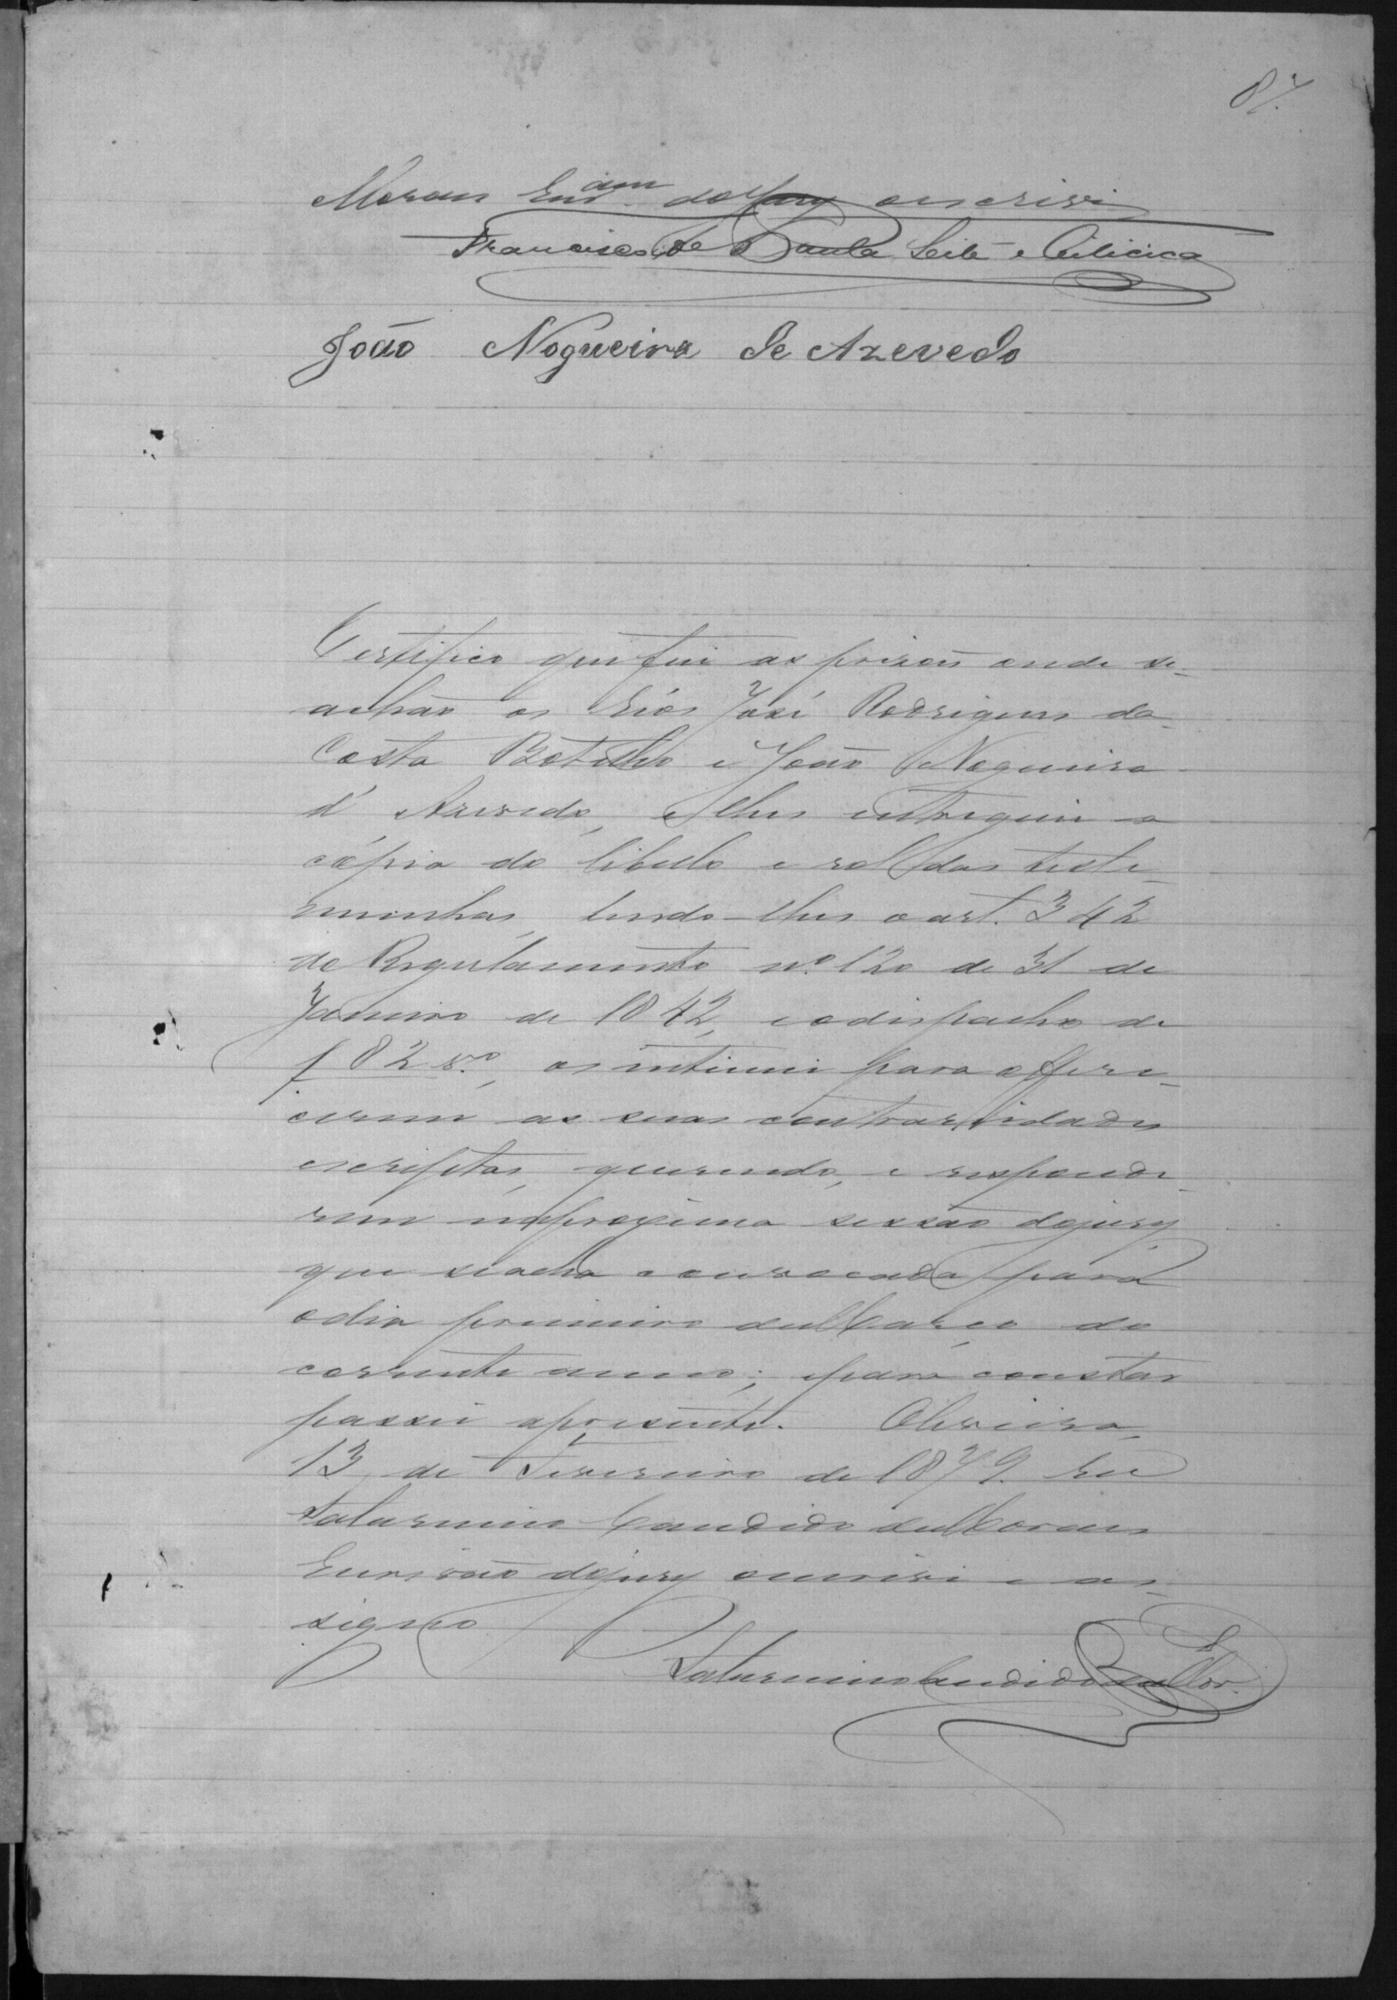 87.
Moraes Escr.am do Jury o escrivi
Francisco de Paula Leite e Oiticica
João Nogueira de Azevedo
Certifico que fui as prizoẽs onde se
achão os réos José Rodrigues da
Costa Botelho e João Nogueira
d'Azevedo, e lhes entreguei a
cópia do libello e rol das teste-
munhas, lendo-lhes o art. 342
do Regulamento nº 120 de 31 de
Janeiro de 1842, e o dispacho de
f 82 v.º, os intimei para offere-
cerem as suas contrariedades
escriptas, querendo, e responde-
rem na proxima sessão do jury
que se acha convocada para
o dia primeiro de Março do
corrente anno; e para constar
passei a presente. Oliveira,
13 de Fevereiro de 1879. Eu
Saturnino Candido de Moraes
Escrivão do jury escrivi e as-
signo
Saturnino Candido de Mor.es